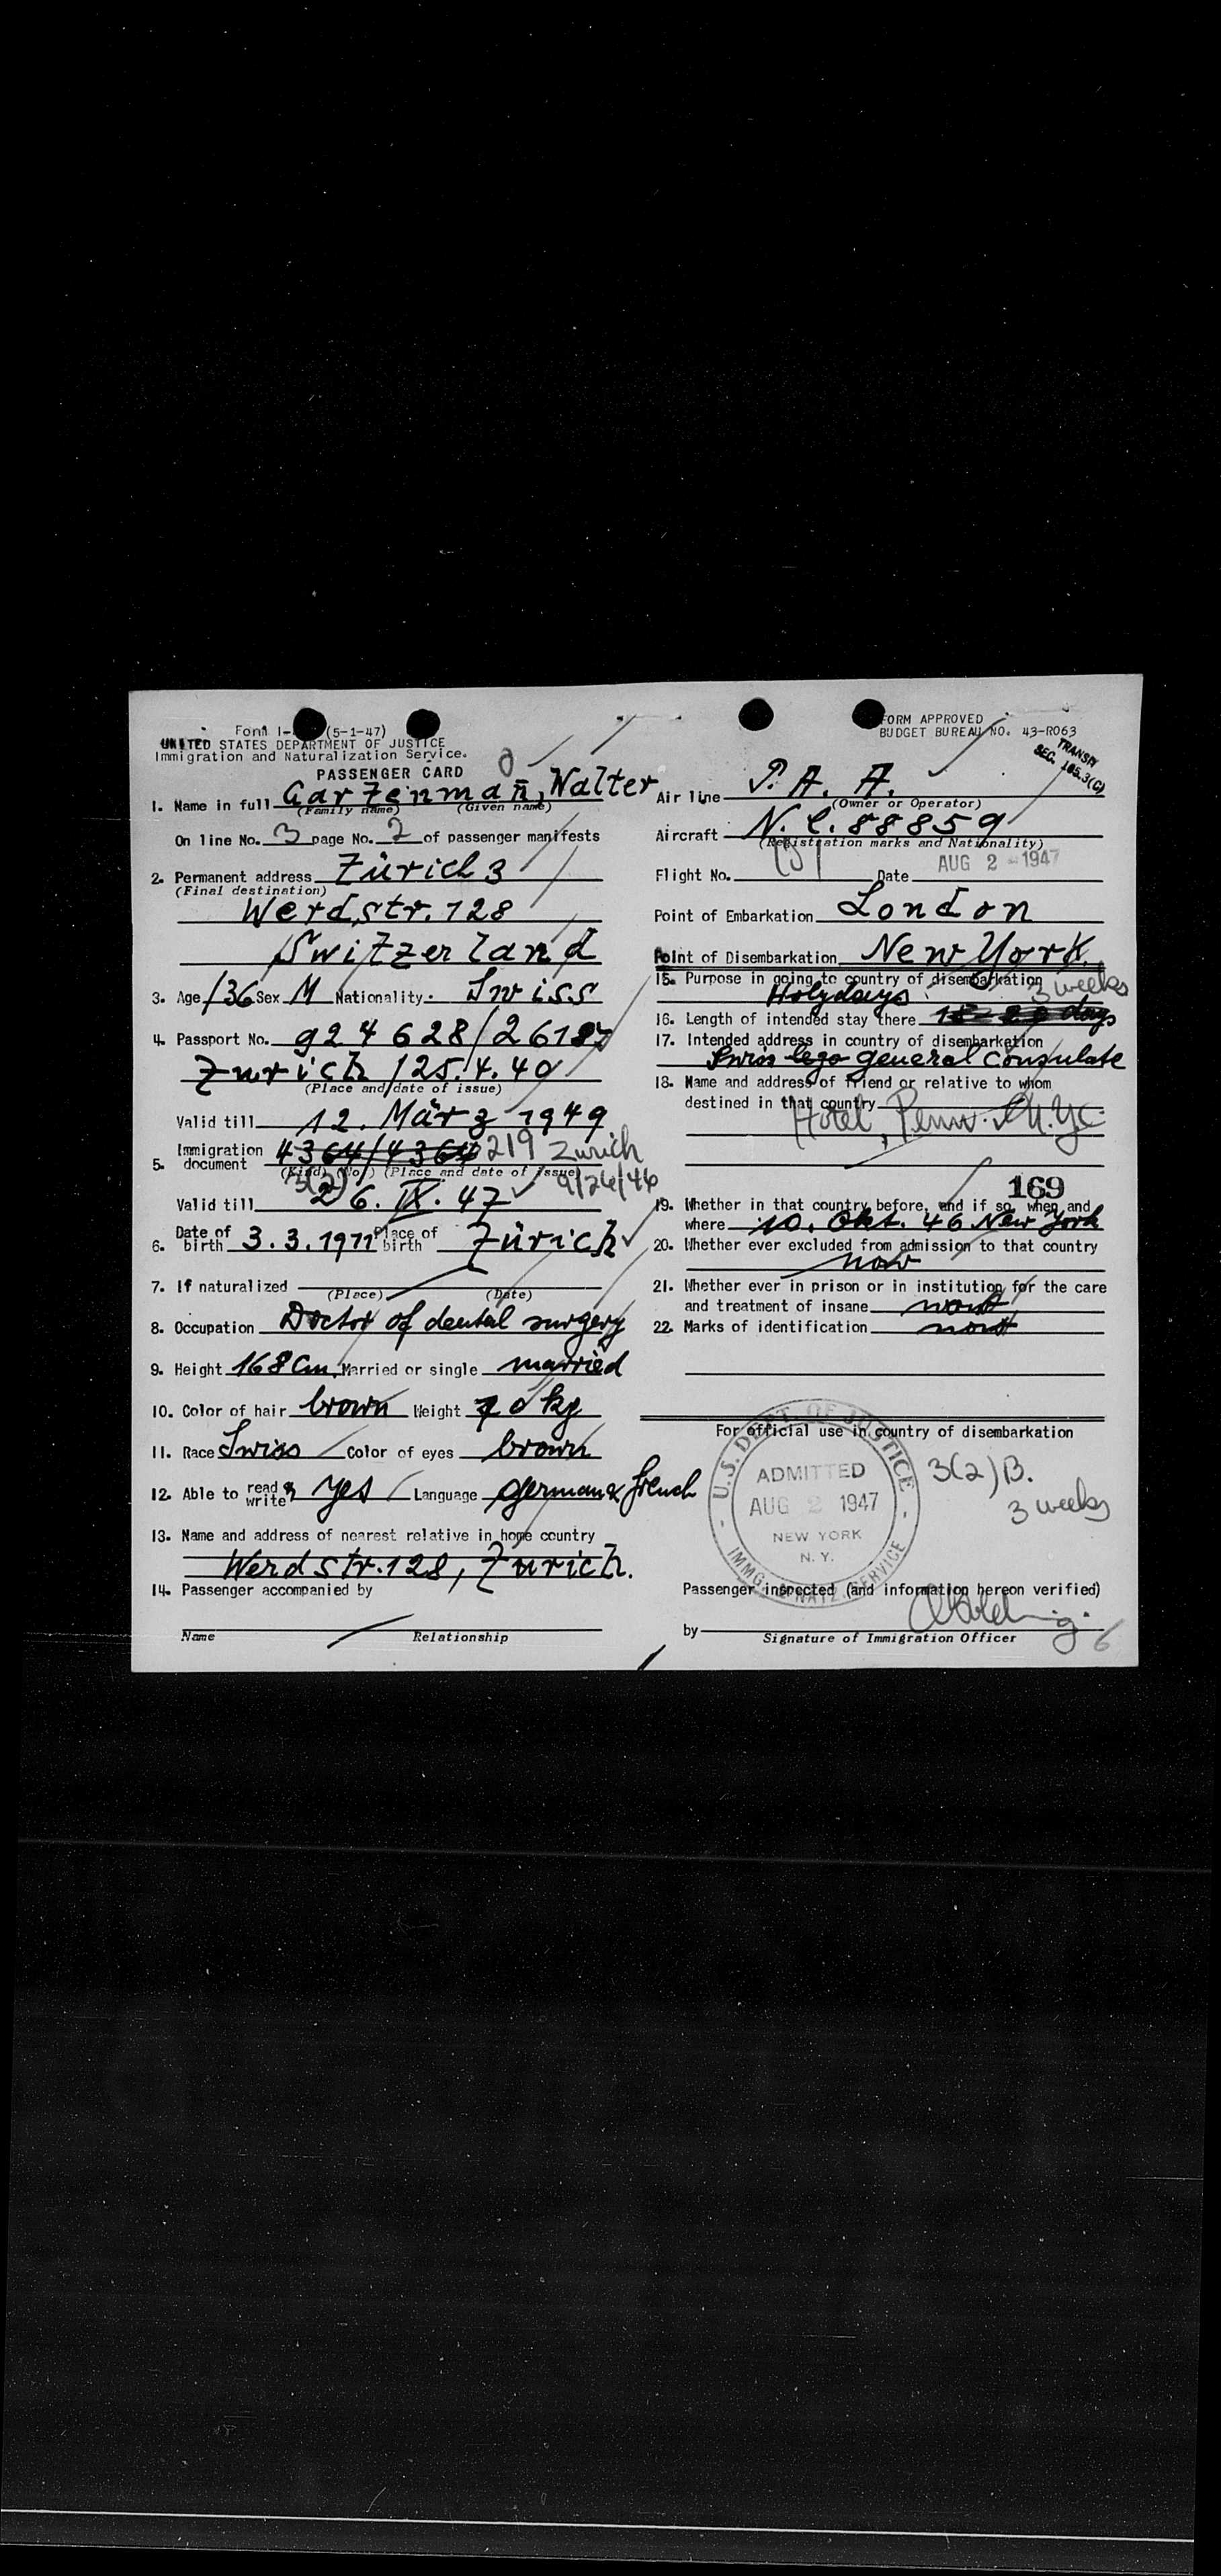 Form I- (5-1-47)
UNITED STATES DEPARTMENT OF JUSTICE
Immigration and Naturalization Service.
PASSENGER CARD
1. Name in full Garzenmañ, Walter
(Family name) (Given name)
On line No. 3 page No. 2 of passenger manifests
2. Permanent address Zürich 3
(Final destination)
Werdstr. 128
Switzerland
3. Age 36 Sex M Nationality. Swiss
4. Passport No. 924628/2618
Zürich 125.4.40
(Place and date of issue)
Valid till 12. März 1949
5. Immigration document 4364/4364 219 Zurich
(Kind) (No.) (Place and date of issue)
3(2) 9/26/46
Valid till 26. IX. 47
6. Date of birth 3.3.1911 Place of birth Zürich
7. If naturalized
(Place) (Date)
8. Occupation Doctor of dental surgery
9. Height 168 cm. Married or single married
10. Color of hair brown Weight 70 kg
11. Race Swiss Color of eyes brown
12. Able to read write & yes Language german & french
13. Name and address of nearest relative in home country
Werdstr. 128, Zürich.
14. Passenger accompanied by
Name Relationship
FORM APPROVED
BUDGET BUREAU NO. 43-R063
TRANSIT
SEC. 165.3(C)
Air line P. A. A.
(Owner or Operator)
Aircraft N.C. 88859
(Registration marks and Nationality)
Flight No. Date AUG 2 1947
Point of Embarkation London
Point of Disembarkation New York.
15. Purpose in going to country of disembarkation
Holydays. 3 weeks
16. Length of intended stay there days
17. Intended address in country of disembarkation
Swiss lega general consulate
18. Name and address of friend or relative to whom
destined in that country
Hotel, Penn. N.Y.C
169
19. Whether in that country before, and if so, when and
where 10. Okt. 46 New York
20. Whether ever excluded from admission to that country
21. Whether ever in prison or in institution for the care
and treatment of insane
22. Marks of identification
For official use in country of disembarkation
U.S. DEPT. OF JUSTICE
ADMITTED
AUG 2 1947
NEW YORK
N. Y.
IMMG. & NATZ. SERVICE
3(2)B.
3 weeks
Passenger inspected (and information hereon verified)
by
Signature of Immigration Officer
6